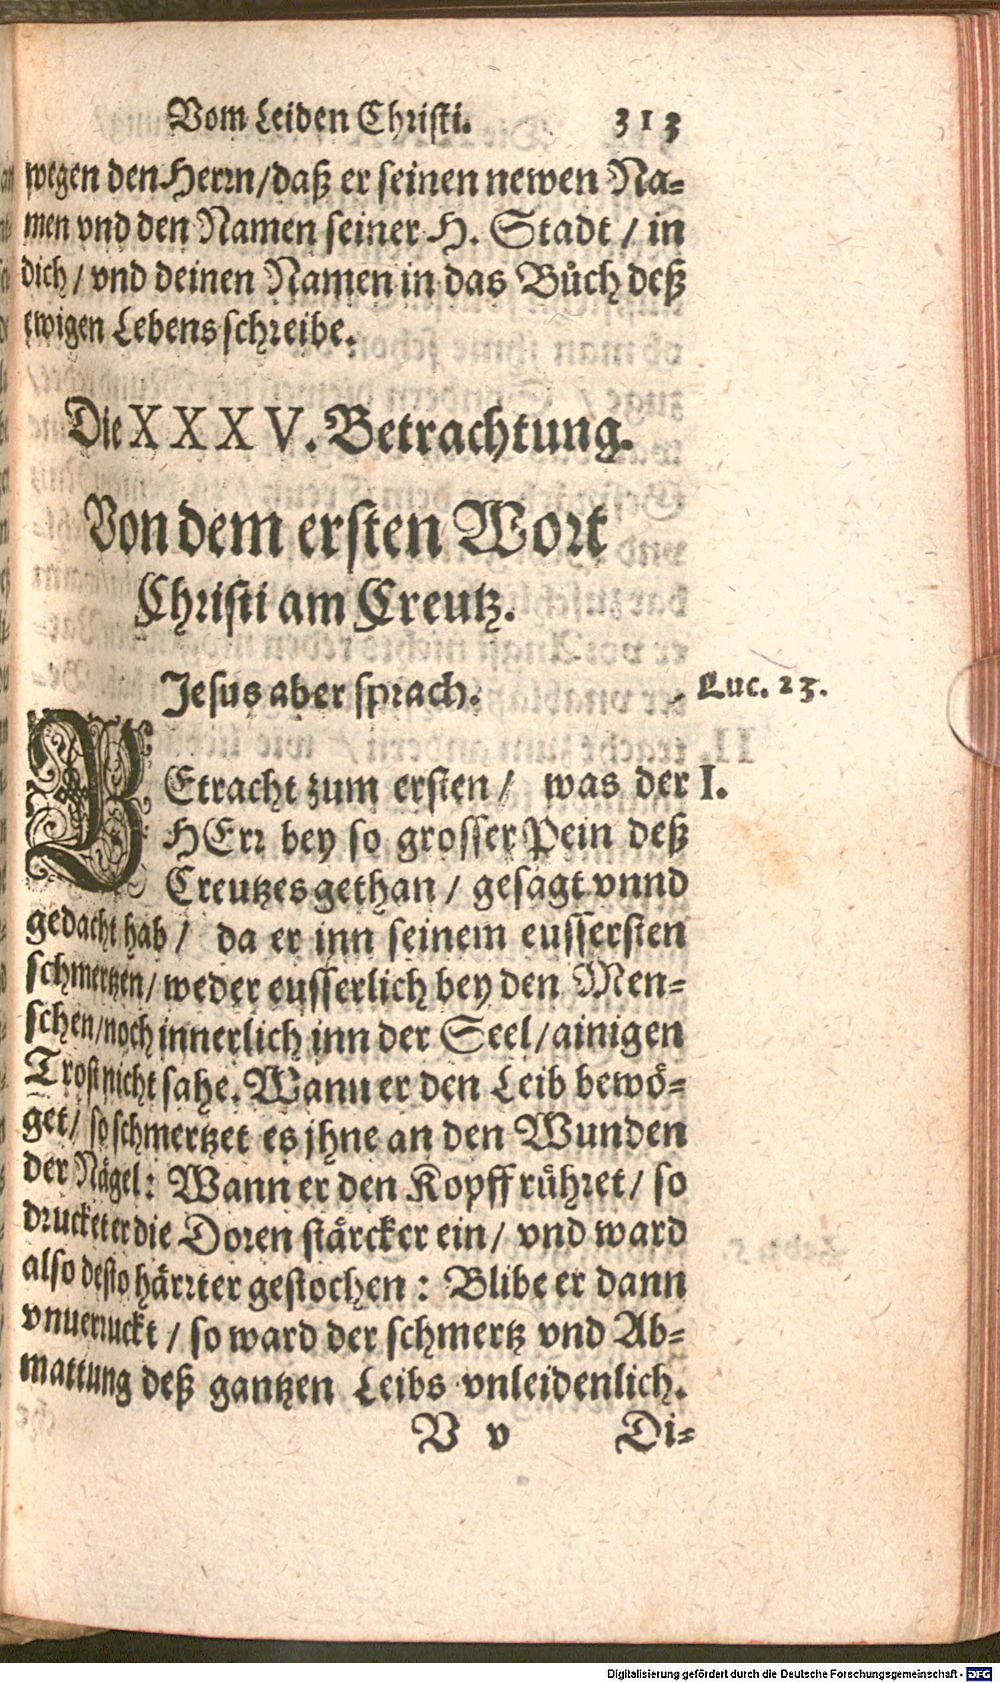 Vom Leiden Christi. 313
wegen den Herrn/daß er seinen newen Na-
men vnd den Namen seiner H. Stadt / in
dich / vnd deinen Namen in das Bůch deß
ewigen Lebens schreibe.
Die XXXV. Betrachtung.
Von dem ersten Wort
Christi am Creutz.
Jesus aber sprach. Luc. 23.
BEtracht zum ersten / was der I.
HErr bey so grosser Pein deß
Creutzes gethan / gesagt vnnd
gedacht hab / da er inn seinem eussersten
schmertzen / weder eusserlich bey den Men-
schen/noch innerlich inn der Seel/ainigen
Trost nicht sahe. Wann er den Leib bewö-
get/ so schmertzet es jhne an den Wunden
der Nägel: Wann er den Kopff rühret/ so
drucket er die Doren stärcker ein/ vnd ward
also desto härrter gestochen : Blibe er dann
vnuerruckt / so ward der schmertz vnd Ab-
mattung deß gantzen Leibs vnleidenlich.
V v Di-
Digitalisierung gefördert durch die Deutsche Forschungsgemeinschaft - DFG